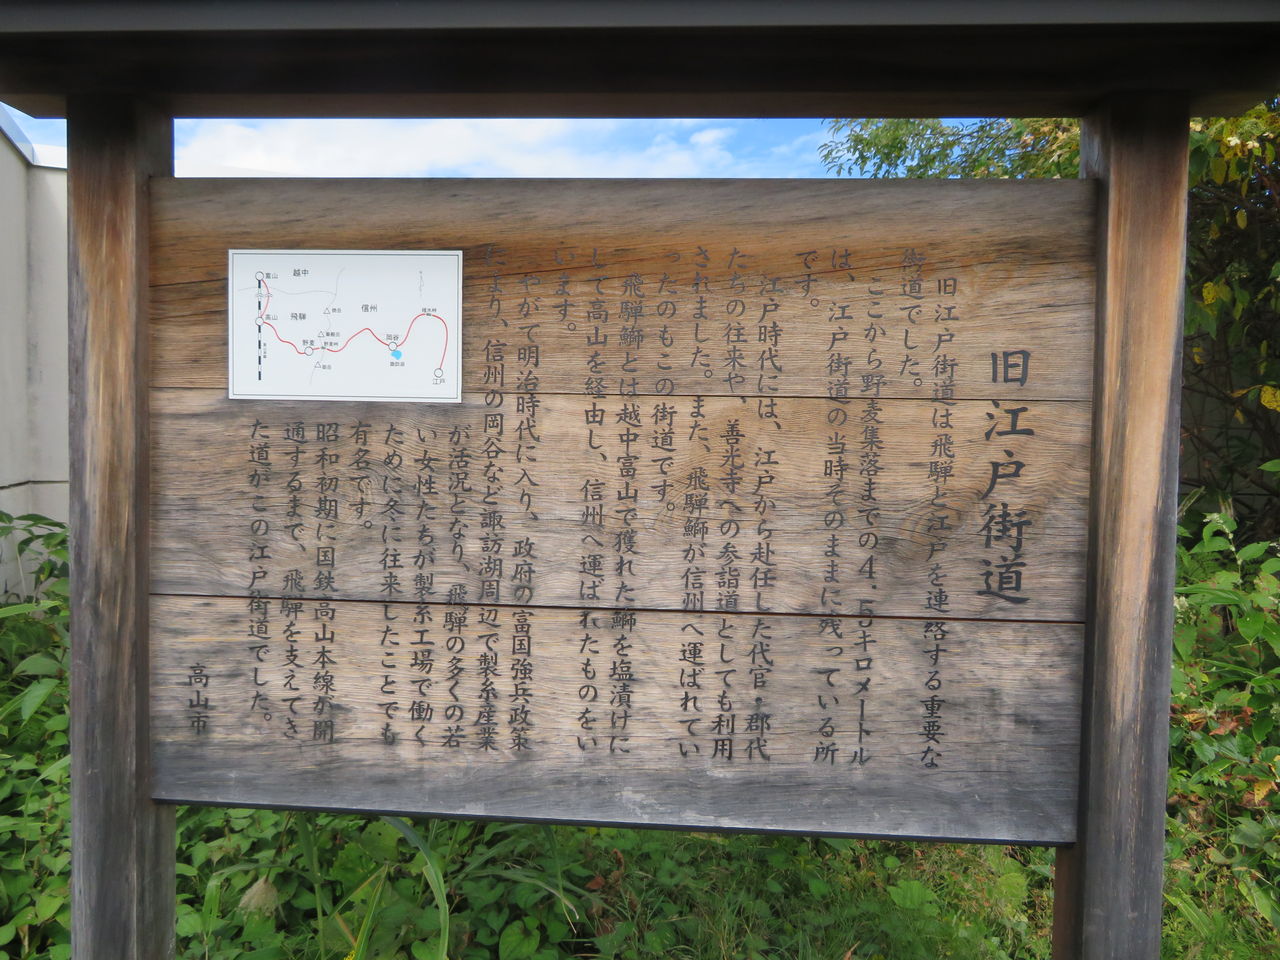 旧江戸街道
旧江戸街道は飛騨と江戸を連絡する重要な
街道でした。
ここから野麦集落までの4.5キロメートル
は、江戸街道の当時そのままに残っている所
です。
江戸時代には、江戸から赴任した代官・郡代
たちの往来や、善光寺への参詣道としても利用
されました。また、飛騨鰤が信州へ運ばれてい
ったのもこの街道です。
飛騨鰤とは越中富山で獲れた鰤を塩漬けに
して高山を経由し、信州へ運ばれたものをい
います。
やがて明治時代に入り、政府の富国強兵政策
により、信州の岡谷など諏訪湖周辺で製糸産業
が活況となり、飛騨の多くの若
い女性たちが製糸工場で働く
ために冬に往来したことでも
有名です。
昭和初期に国鉄高山本線が開
通するまで、飛騨を支えてき
た道がこの江戸街道でした。
高山市
富山
越中
高山
飛騨
信州
野麦
野麦峠
岡谷
諏訪湖
碓氷峠
江戸